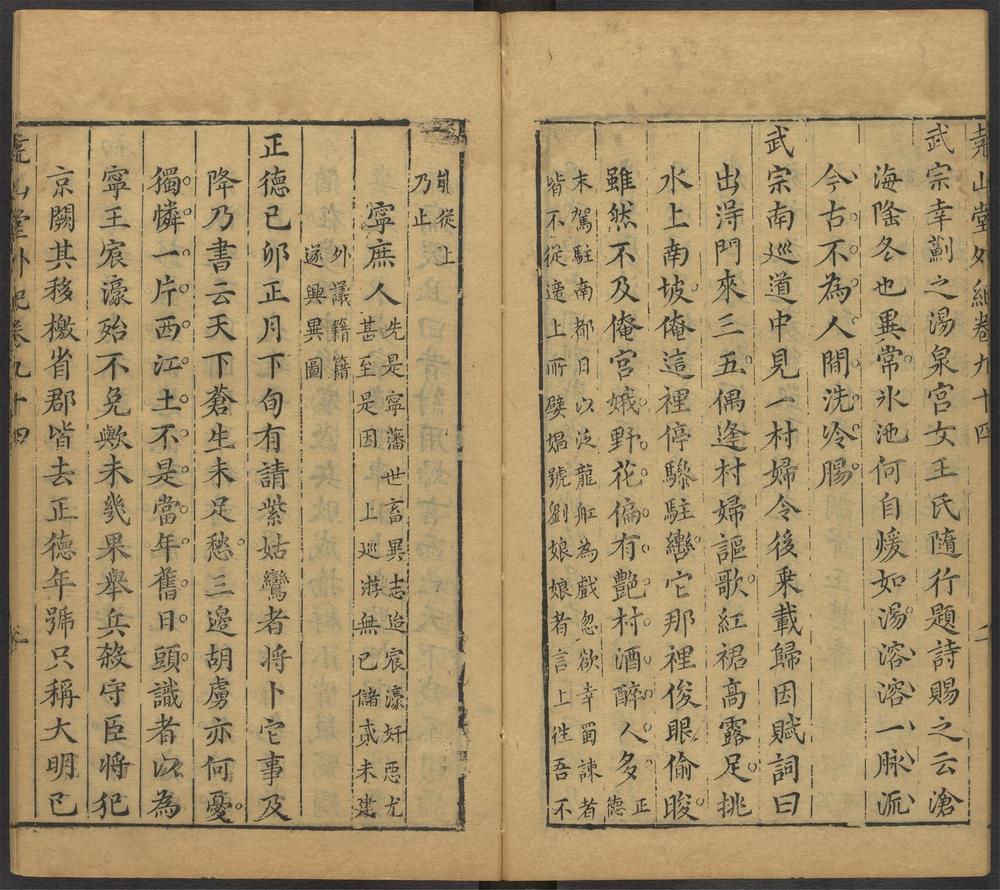 堯山堂外紀卷九十四 二
武宗幸薊之湯泉宮女王氏隨行題詩賜之云滄
海隆冬也異常氷池何自煖如湯溶溶一脉流
今古不為人間洗冷腸
武宗南巡道中見一村婦令後乗載歸因賦詞曰
出淂門來三五偶逢村婦謳歌紅裙高露足挑
水上南坡俺這裡停驂駐轡它那裡俊眼偷睃
雖然不及俺宮娥野花偏有艷村酒醉人多正德
末駕駐南都日以泛龍舡為戲忽欲幸蜀諫者
皆不從適上所嬖娼號劉娘娘者言上徃吾不
能從上
乃止
寧庶人先是寧藩世畜異志迨宸濠奸惡尤
甚至是因上巡游無已儲貳未建
外議籍籍
遂興異圖
正德己卯正月下旬有請紫姑鸞者將卜它事及
降乃書云天下蒼生未足愁三邊胡虜亦何憂
獨憐一片西江土不是當年舊日頭識者以為
寧王宸濠殆不免歟未幾果舉兵殺守臣將犯
京闕其移檄省郡皆去正德年號只稱大明己
堯山堂外紀卷九十四